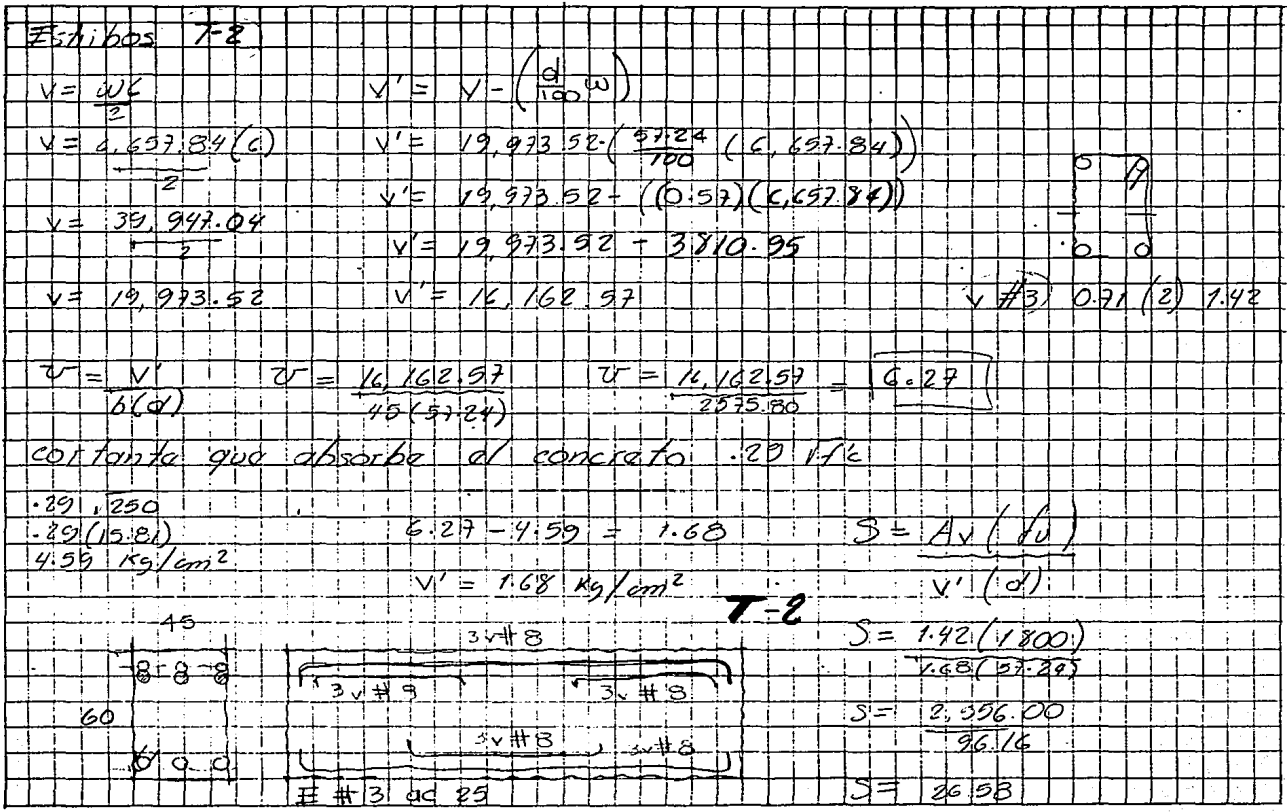 Estribos T-2
v = wl / 2
v' = v - (d/100 w)
v = 6,657.84(6) / 2
v' = 19,973.52 - (57.24/100 (6,657.84))
v' = 19,973.52 - ((0.57)(6,657.84))
v = 39,947.04 / 2
v' = 19,973.52 - 3810.95
v = 19,973.52
v' = 16,162.57
v #3) 0.71 (2) 1.42
v = v' / b(d)
v = 16,162.57 / 45(57.24)
v = 16,162.57 / 2575.80 = 6.27
cortante que absorbe el concreto .29 √f'c
.29 √250
.29 (15.81)
4.59 kg/cm²
6.27 - 4.59 = 1.68
v' = 1.68 kg/cm²
S = Av (fv) / v' (d)
T-2
S = 1.42 (1800) / 1.68 (57.24)
S = 2,556.00 / 96.16
S = 26.58
45
60
3 v #8
3 v #8
3 v #8
3 v #8
3 v #8
E #3 ac 25